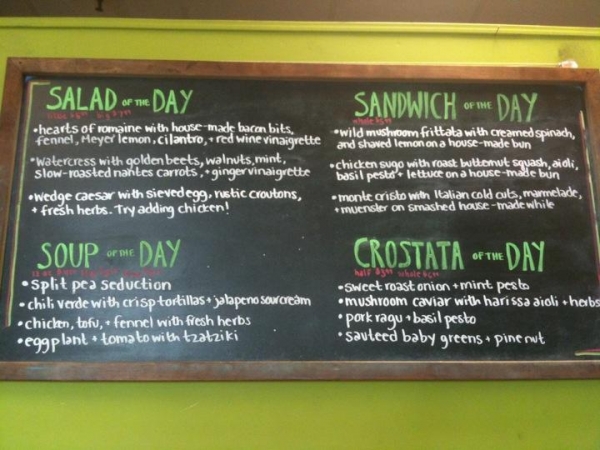 SALAD OF THE DAY
• hearts of romaine with house-made bacon bits,
fennel, Meyer lemon, cilantro, + red wine vinaigrette
• Watercress with golden beets, walnuts, mint,
slow-roasted nantes carrots, + ginger vinaigrette
• Wedge caesar with sieved egg, rustic croutons,
+ fresh herbs. Try adding chicken!
SOUP OF THE DAY
• Split pea seduction
• chili verde with crisp tortillas + jalapeno sour cream
• chicken, tofu, + fennel with fresh herbs
• eggplant + tomato with tzatziki
SANDWICH OF THE DAY
• wild mushroom frittata with creamed spinach,
and shaved lemon on a house-made bun
• chicken sugo with roast butternut squash, aioli,
basil pesto + lettuce on a house-made bun
• monte cristo with Italian cold cuts, marmelade,
+ muenster on smashed house-made white
CROSTATA OF THE DAY
half whole
• sweet roast onion + mint pesto
• mushroom caviar with harissa aioli + herbs
• pork ragu + basil pesto
• sauteed baby greens + pine nut